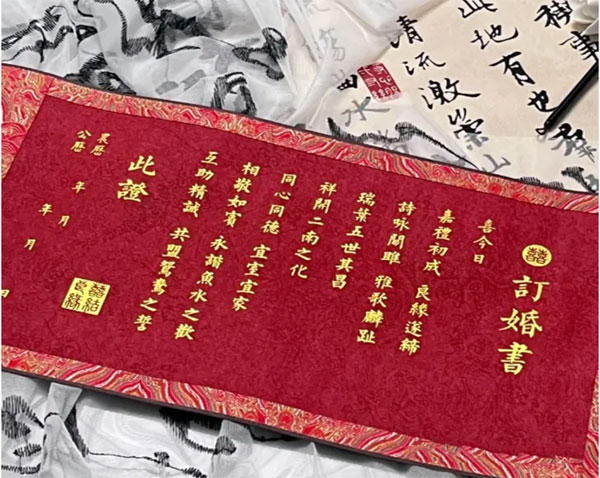 禊事也羣
此地有崇山
清流激
曲水
囍
訂婚書
喜今日
嘉禮初成 良緣遂締
詩咏關雎 雅歌麟趾
瑞葉五世其昌
祥開二南之化
同心同德 宜室宜家
相敬如賓 永諧魚水之歡
互助精誠 共盟鴛鴦之誓
此證
農曆 年 月
公曆 年 月 日
囍結良緣